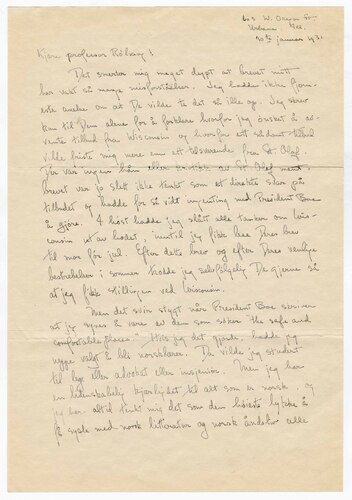 605 W. Oregon St.
Urbana Ill.
30te januar 1931
Kjære professor Rölvaag!
Det smerter mig meget dypt at brevet mitt
har vakt så mange misforståelser. Jeg hadde ikke fjern-
este anelse om at De vilde ta det så ille op. Jeg skrev
kun til Dem alene for å forklare hvorfor jeg ønsket å av-
vente tilbud fra Wisconsin og hvorfor et sådant tilbud
vilde friste mig mere enn et tilsvarende fra St. Olaf.
Der var ingen hån eller kritikk av St Olaf ment.
brevet var jo slett ikke tenkt som et direkte svar på
tilbudet og hadde for så vidt ingenting med President Boe
å gjøre. I høst hadde jeg slått alle tanker om Wis-
consin ut av hodet, inntil jeg fikk høre Deres brev
til mor før jul. Efter dette brev og efter Deres venlige
bestrebelser i sommer trodde jeg selvfølgelig De gjerne så
at jeg fikk stillingen ved Wisconsin.
Men det svir stygt når President Boe skriver
at jeg synes å være en dem som søker "the safe and
comfortable places." Hvis jeg det gjorde, hadde jeg
neppe valgt å bli norsklærer. Da vilde jeg studert
til lege eller advokat eller ingeniør. Men jeg har
en lidenskabelig kjærlighet til alt som er norsk, og
jeg har alltid tenkt mig det som den høieste lykke å
få sysle med norsk litteratur og norsk åndsliv alle